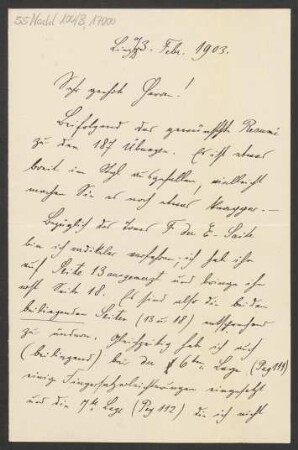 55 Nachl 100/B, 17000
Linz, 23. Febr. 1903.
Sehr geehrter Herr!
Beifolgend das gewünschte Resumé
zu den 187 Übungen. Es ist etwas
breit im Styl ausgefallen, vielleicht
machen Sie es noch etwas knapper. —
Bezüglich des Tones F der E-Saite
bin ich radikaler verfahren; ich habe ihn
auf Seite 13 ausgemerzt und bringe ihn
erst Seite 18. Es sind also die beiden
beiliegenden Seiten (13 u 18) entsprechend
zu ändern. Gleichzeitig habe ich noch
(beiliegend) bei der 6ten Lage (Pag 111)
einige Fingersatzerleichterungen eingesetzt
und die 7te Lage (Pag 112) die ich nicht